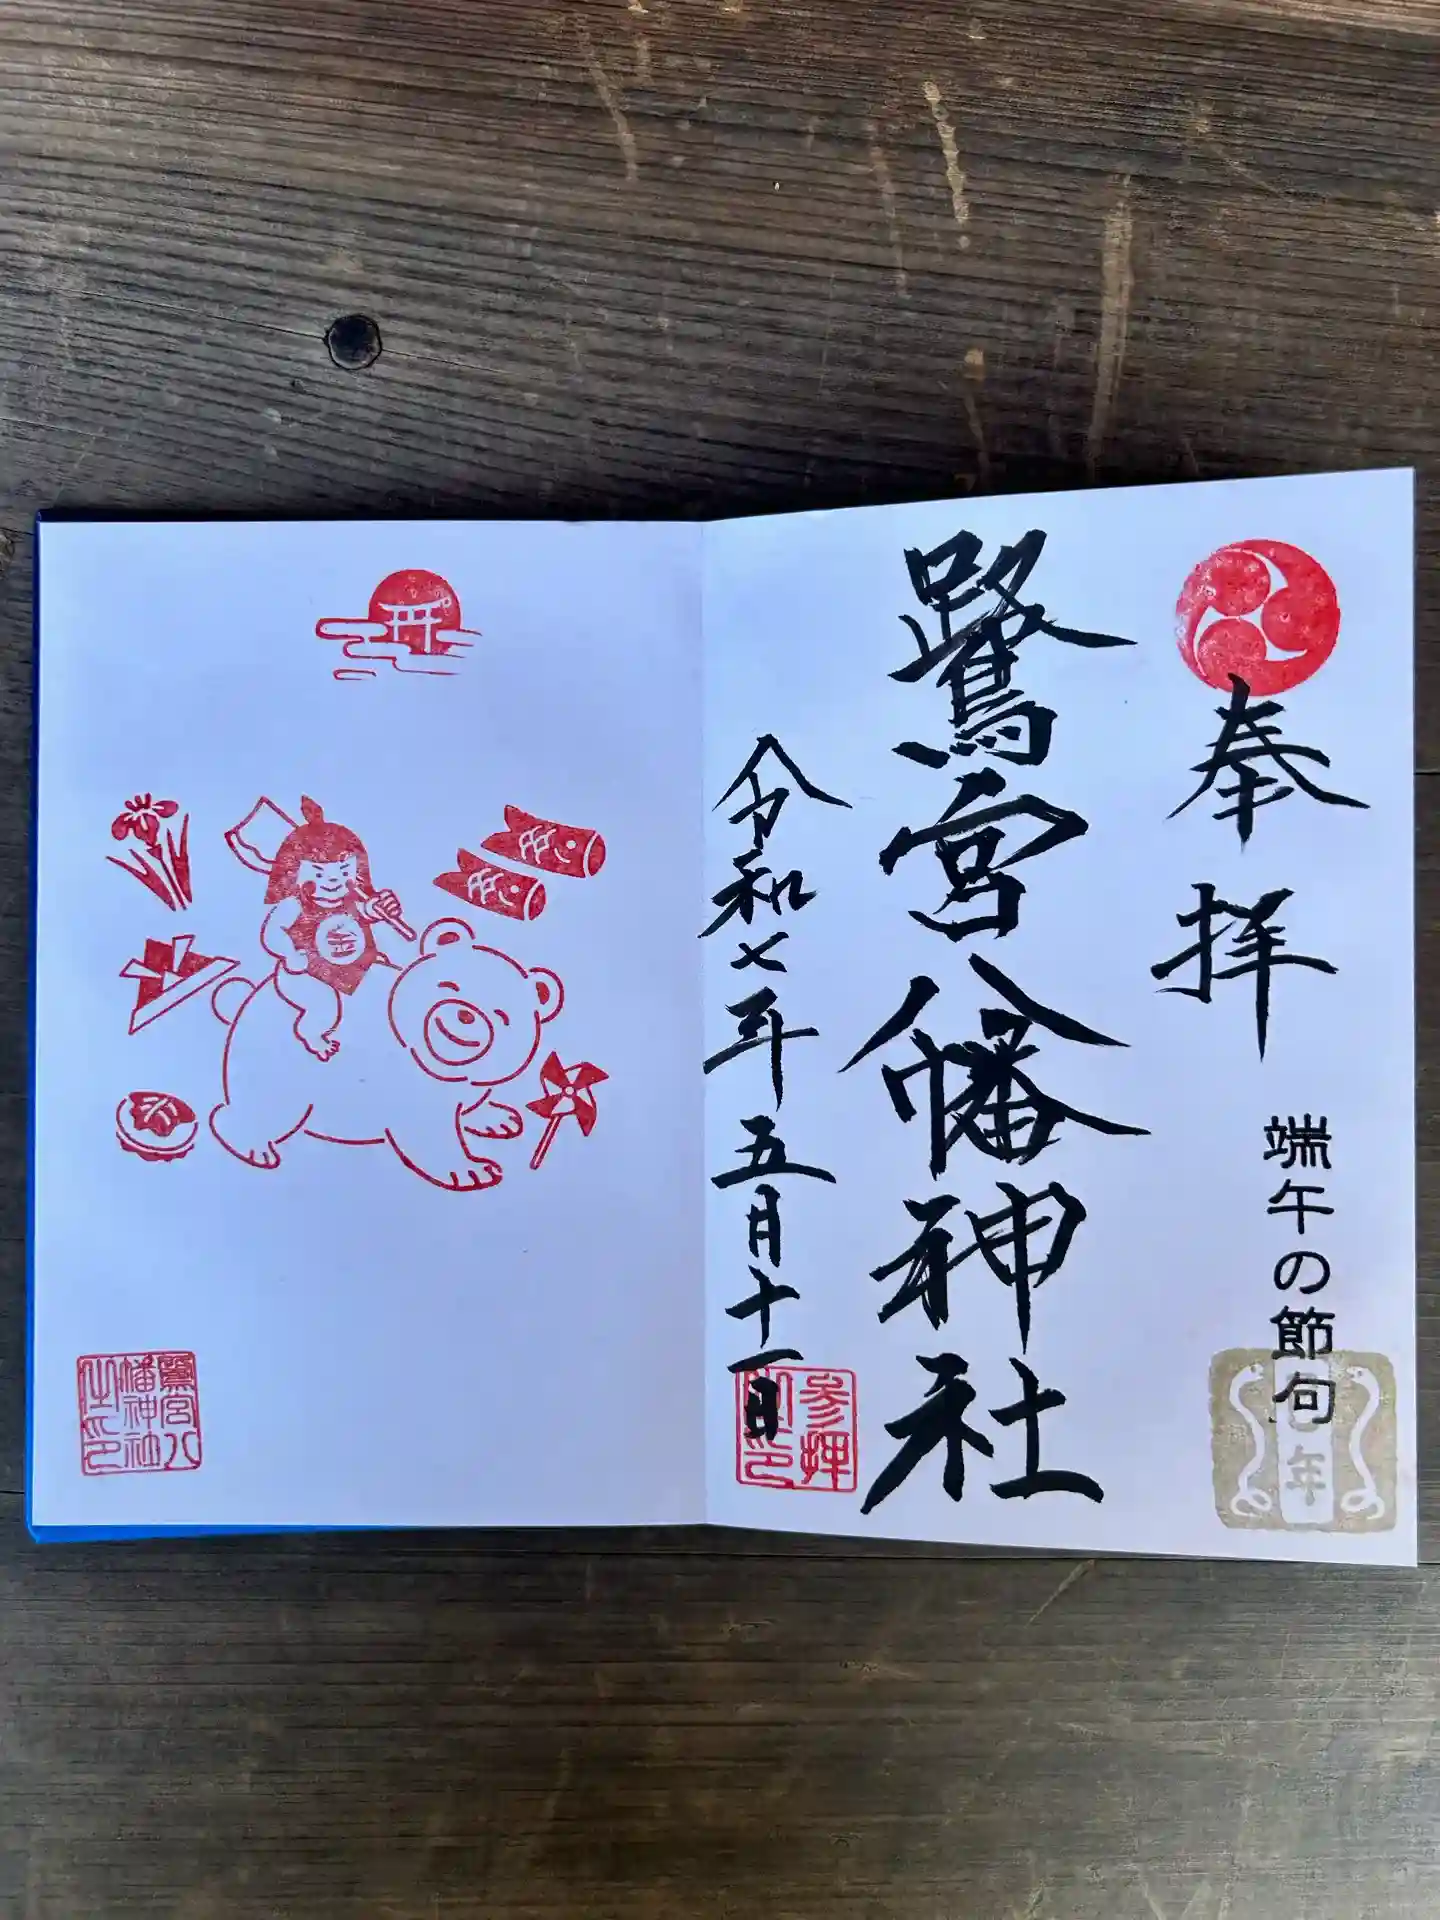 奉拝
端午の節句
年
鷺宮八幡神社
令和七年五月十一日
参拝
之印
金
鷺宮八
幡神社
之印